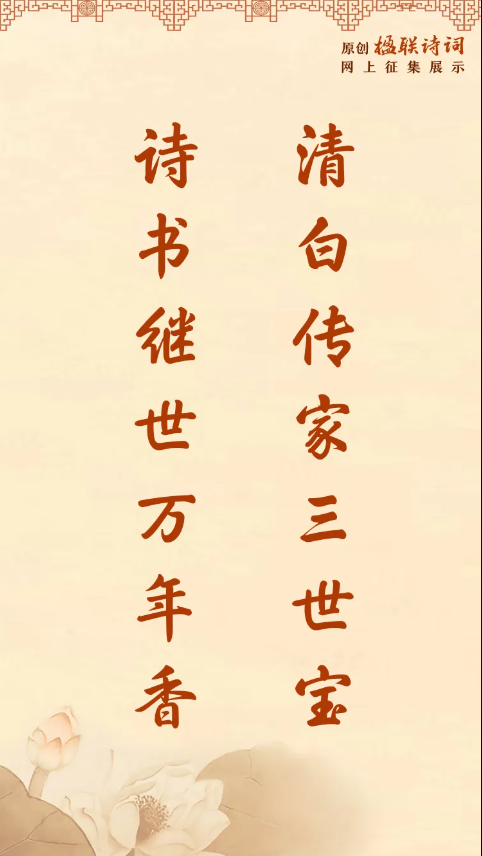 原创楹联诗词
网上征集展示
清白传家三世宝
诗书继世万年香